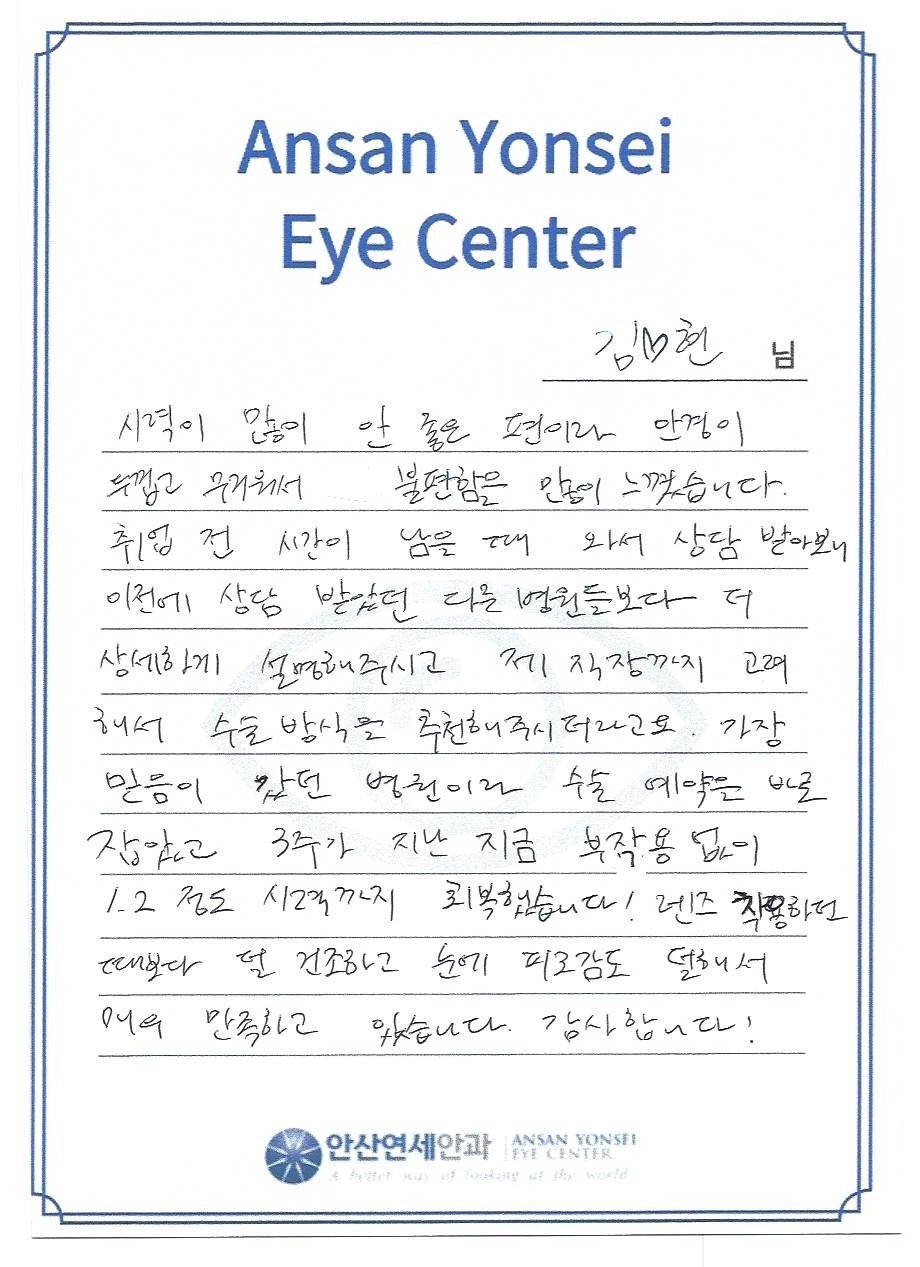 Ansan Yonsei
Eye Center
김♡현 님
시력이 많이 안 좋은 편이라 안경이
두껍고 무거워서 불편함을 많이 느꼈습니다.
취업 전 시간이 남을 때 와서 상담 받아보니
이전에 상담 받았던 다른 병원들보다 더
상세하게 설명해주시고 제 직장까지 고려
해서 수술 방식을 추천해주시더라고요. 가장
믿음이 갔던 병원이라 수술 예약을 바로
잡았고 3주가 지난 지금 부작용 없이
1.2 정도 시력까지 회복했습니다! 렌즈 착용하던
때보다 덜 건조하고 눈에 피로감도 덜해서
매우 만족하고 있습니다. 감사합니다!
안산연세안과 ANSAN YONSEI
EYE CENTER
A better way of looking at the world